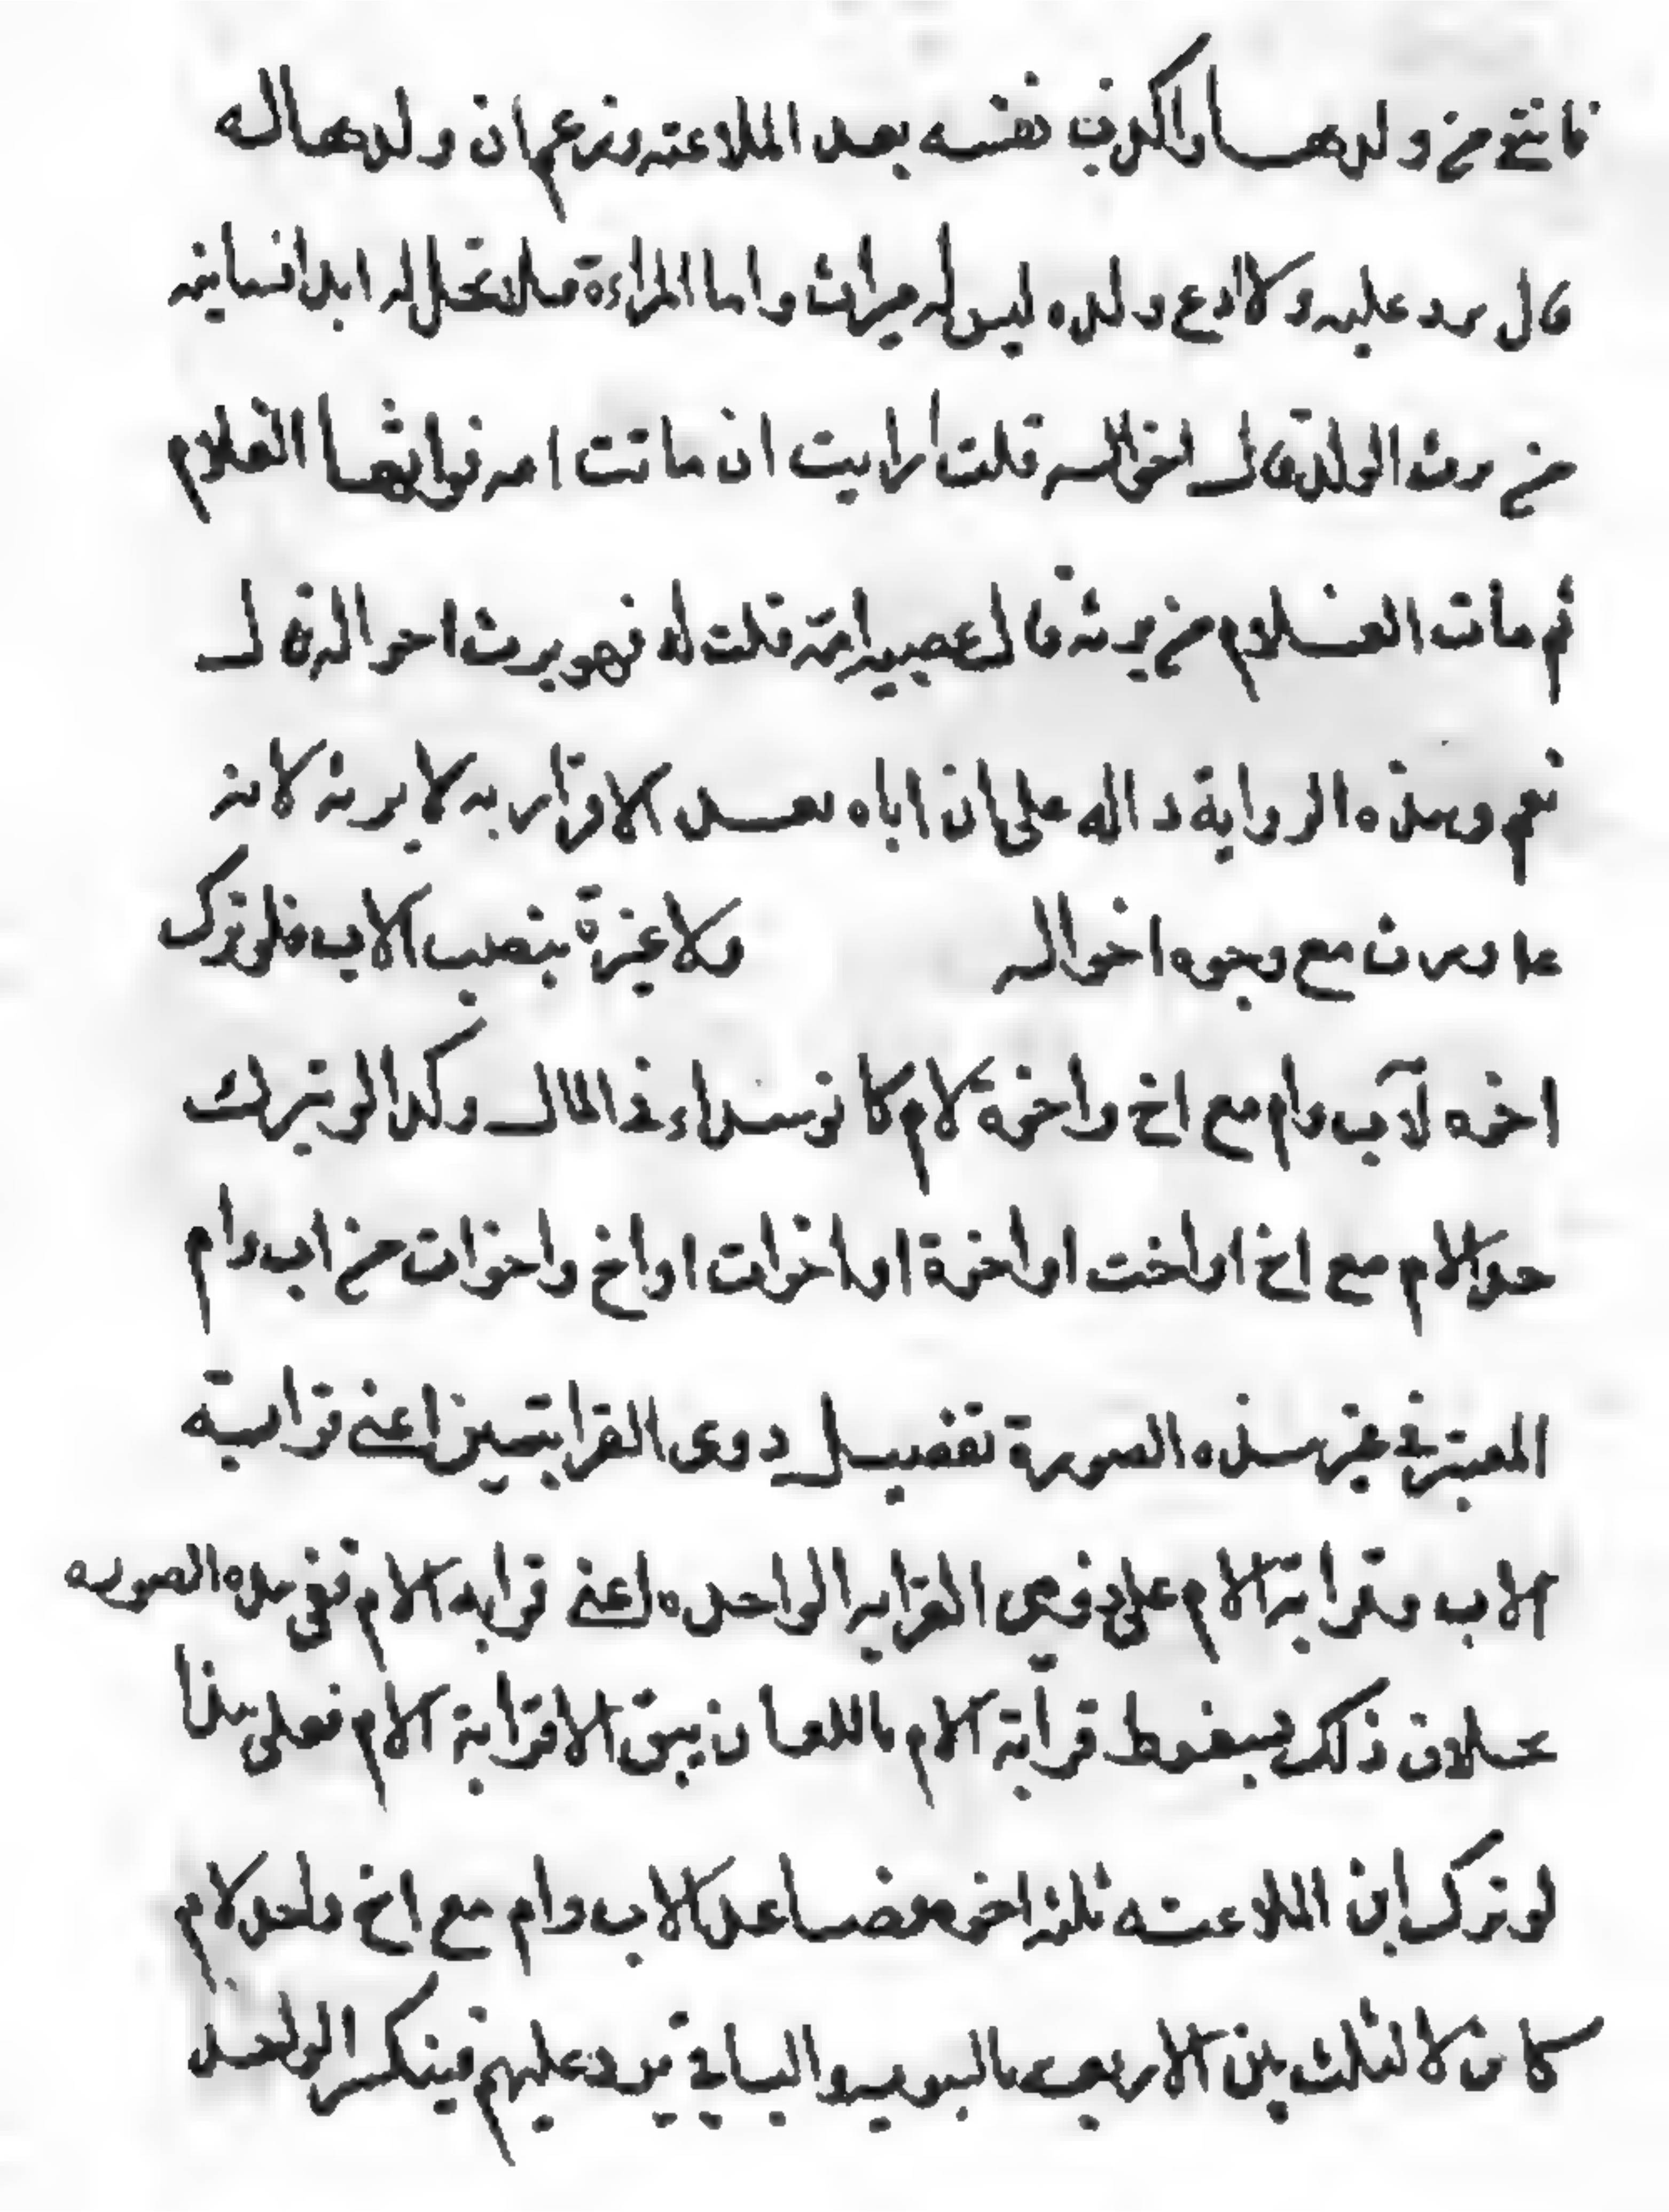 فانتفى من ولدها واكذب نفسه بعد الملاعنه وزعم ان ولدها له
قال يرد عليه ولا ادع ولده ليس له ميراث واما المراءة فلا تحل له ابدا فسالته
من يرث الولد قال اخواله قلت ارايت ان ماتت امه فورثها الغلام
ثم مات الغلام من يرثه قال عصبه امه قلت له فهو يرث اخواله قال
نعم وهذه الرواية داله على ان اباه بعد الاقرار به لا يرثه لانه
مع وجوه اخواله ولا عبرة بنصب الاب فلو ترك
اخوه لاب وام مع اخ واخوه لام كانو سواء في المال وكذا لو ترك
جد الام مع اخ او اخت او اخوة او اخوات او اخ واخوات من اب وام
المعتبر في غير هذه الصورة تفضيل ذوى القرابتين اعني قرابة
الاب وقرابة الام على ذوى القرابه الواحده اعني قرابه الام ففي هذه الصوره
بخلاف ذلك بسقوط قرابة الام باللعان يبق الا قرابة الام فعلى هذا
لو ترك ابن الملاعنه ثلثه اخوه فصاعدا لاب وام مع اخ واحد لام
كان الثلث بين الاربعه بالسويه والباقي يرد عليهم فينكسر الواحد